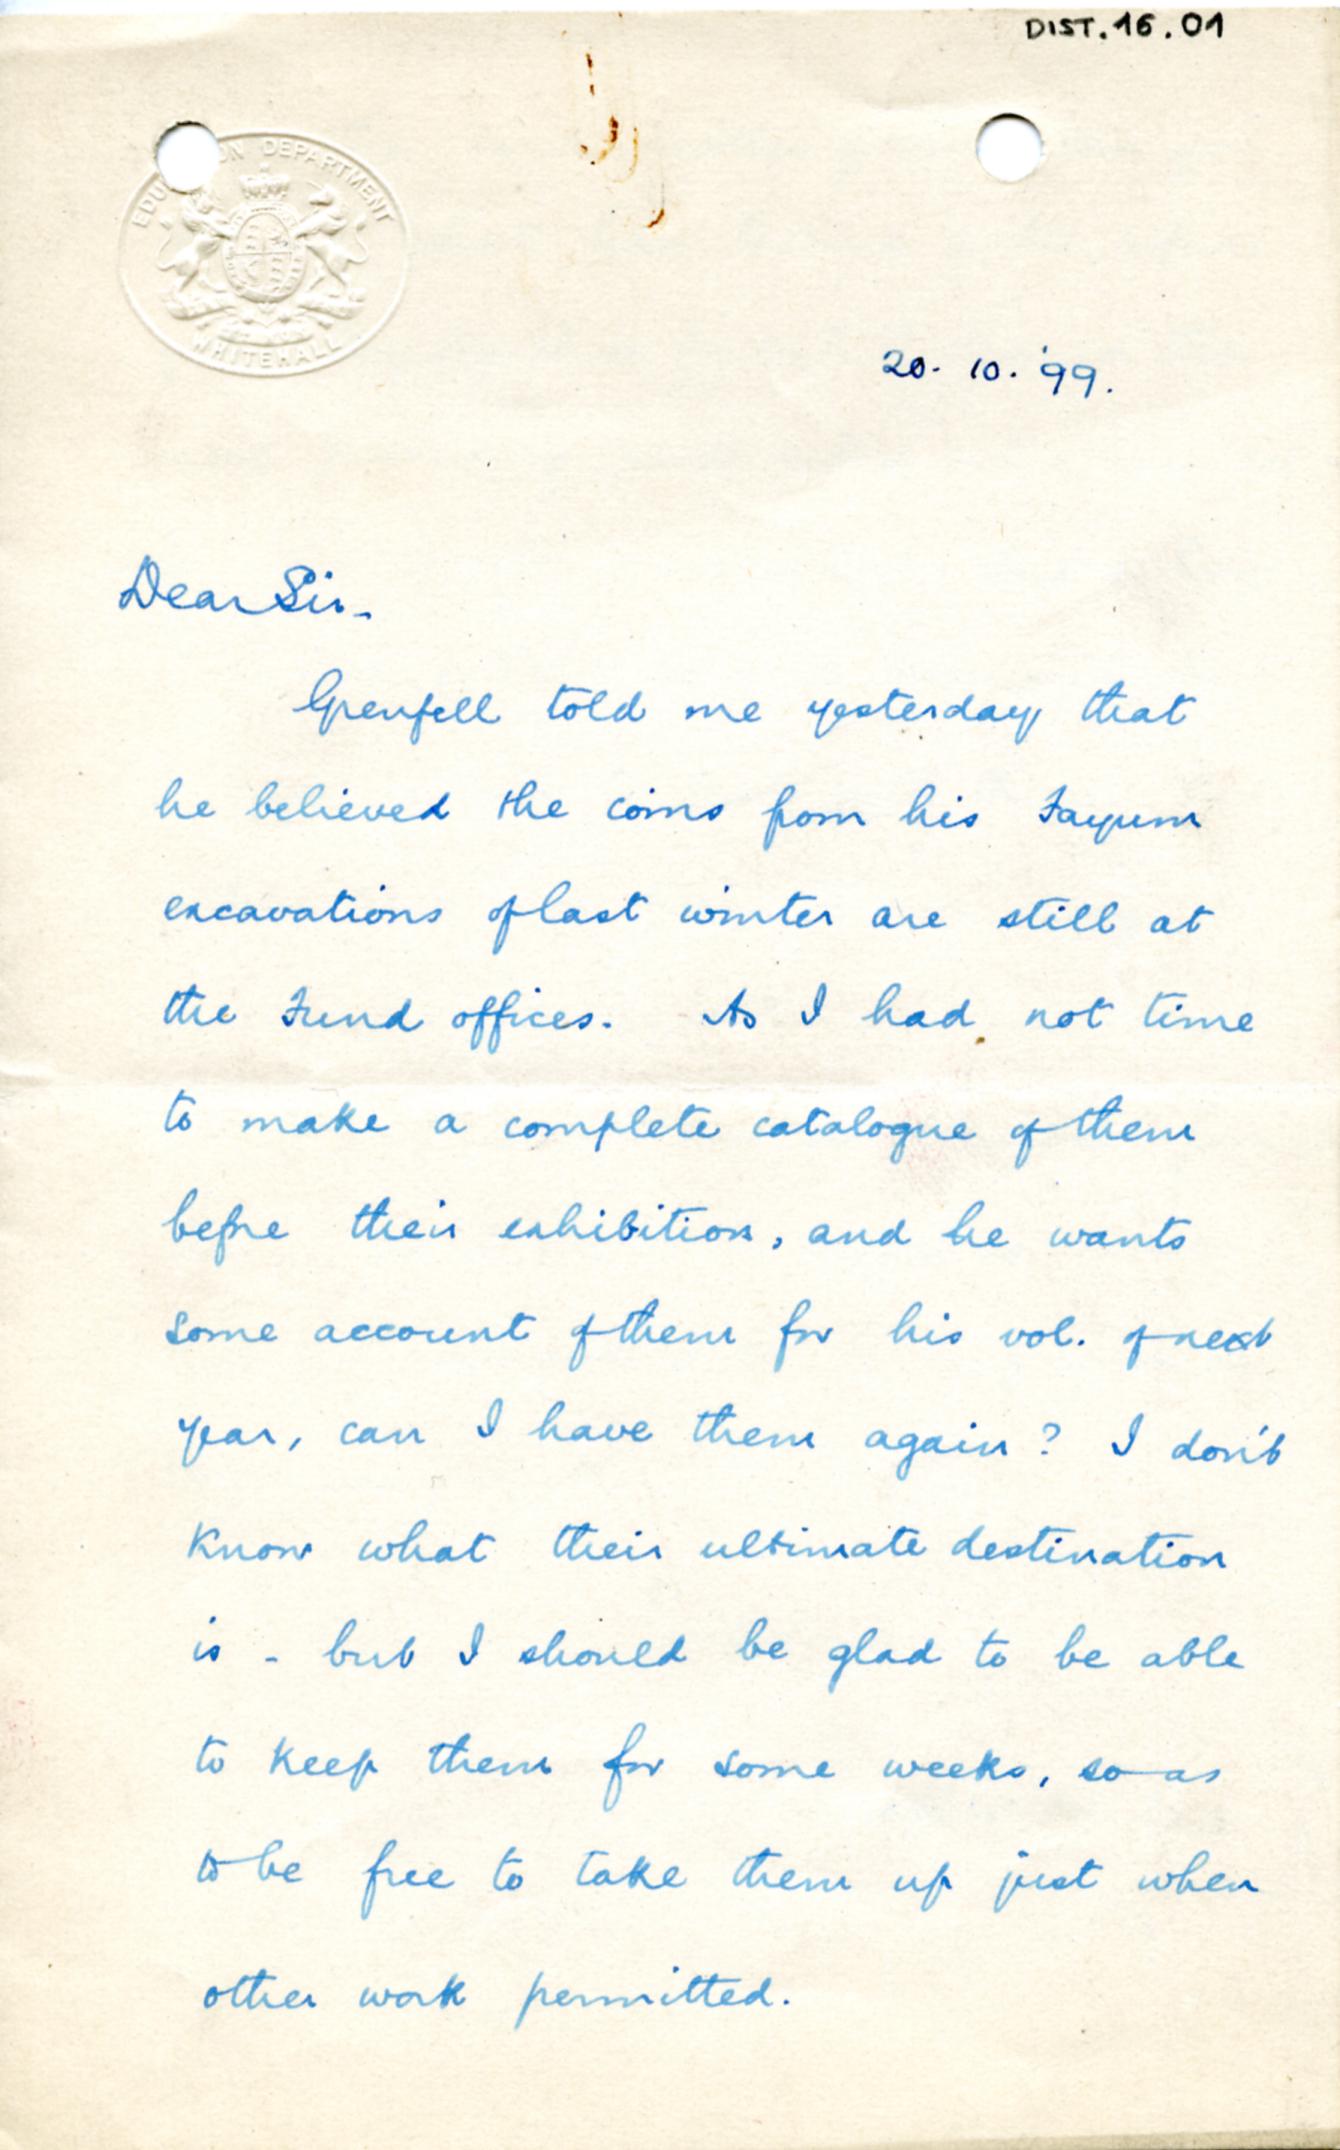 DIST.16.01
EDU ON DEPARTMENT
WHITEHALL
20. 10. '99.
Dear Sir-
Grenfell told me yesterday that
he believed the coins from his Fayum
excavations of last winter are still at
the Fund offices. As I had not time
to make a complete catalogue of them
before their exhibition, and he wants
some account of them for his vol. of next
year, can I have them again? I don't
know what their ultimate destination
is - but I should be glad to be able
to keep them for some weeks, so as
to be free to take them up just when
other work permitted.